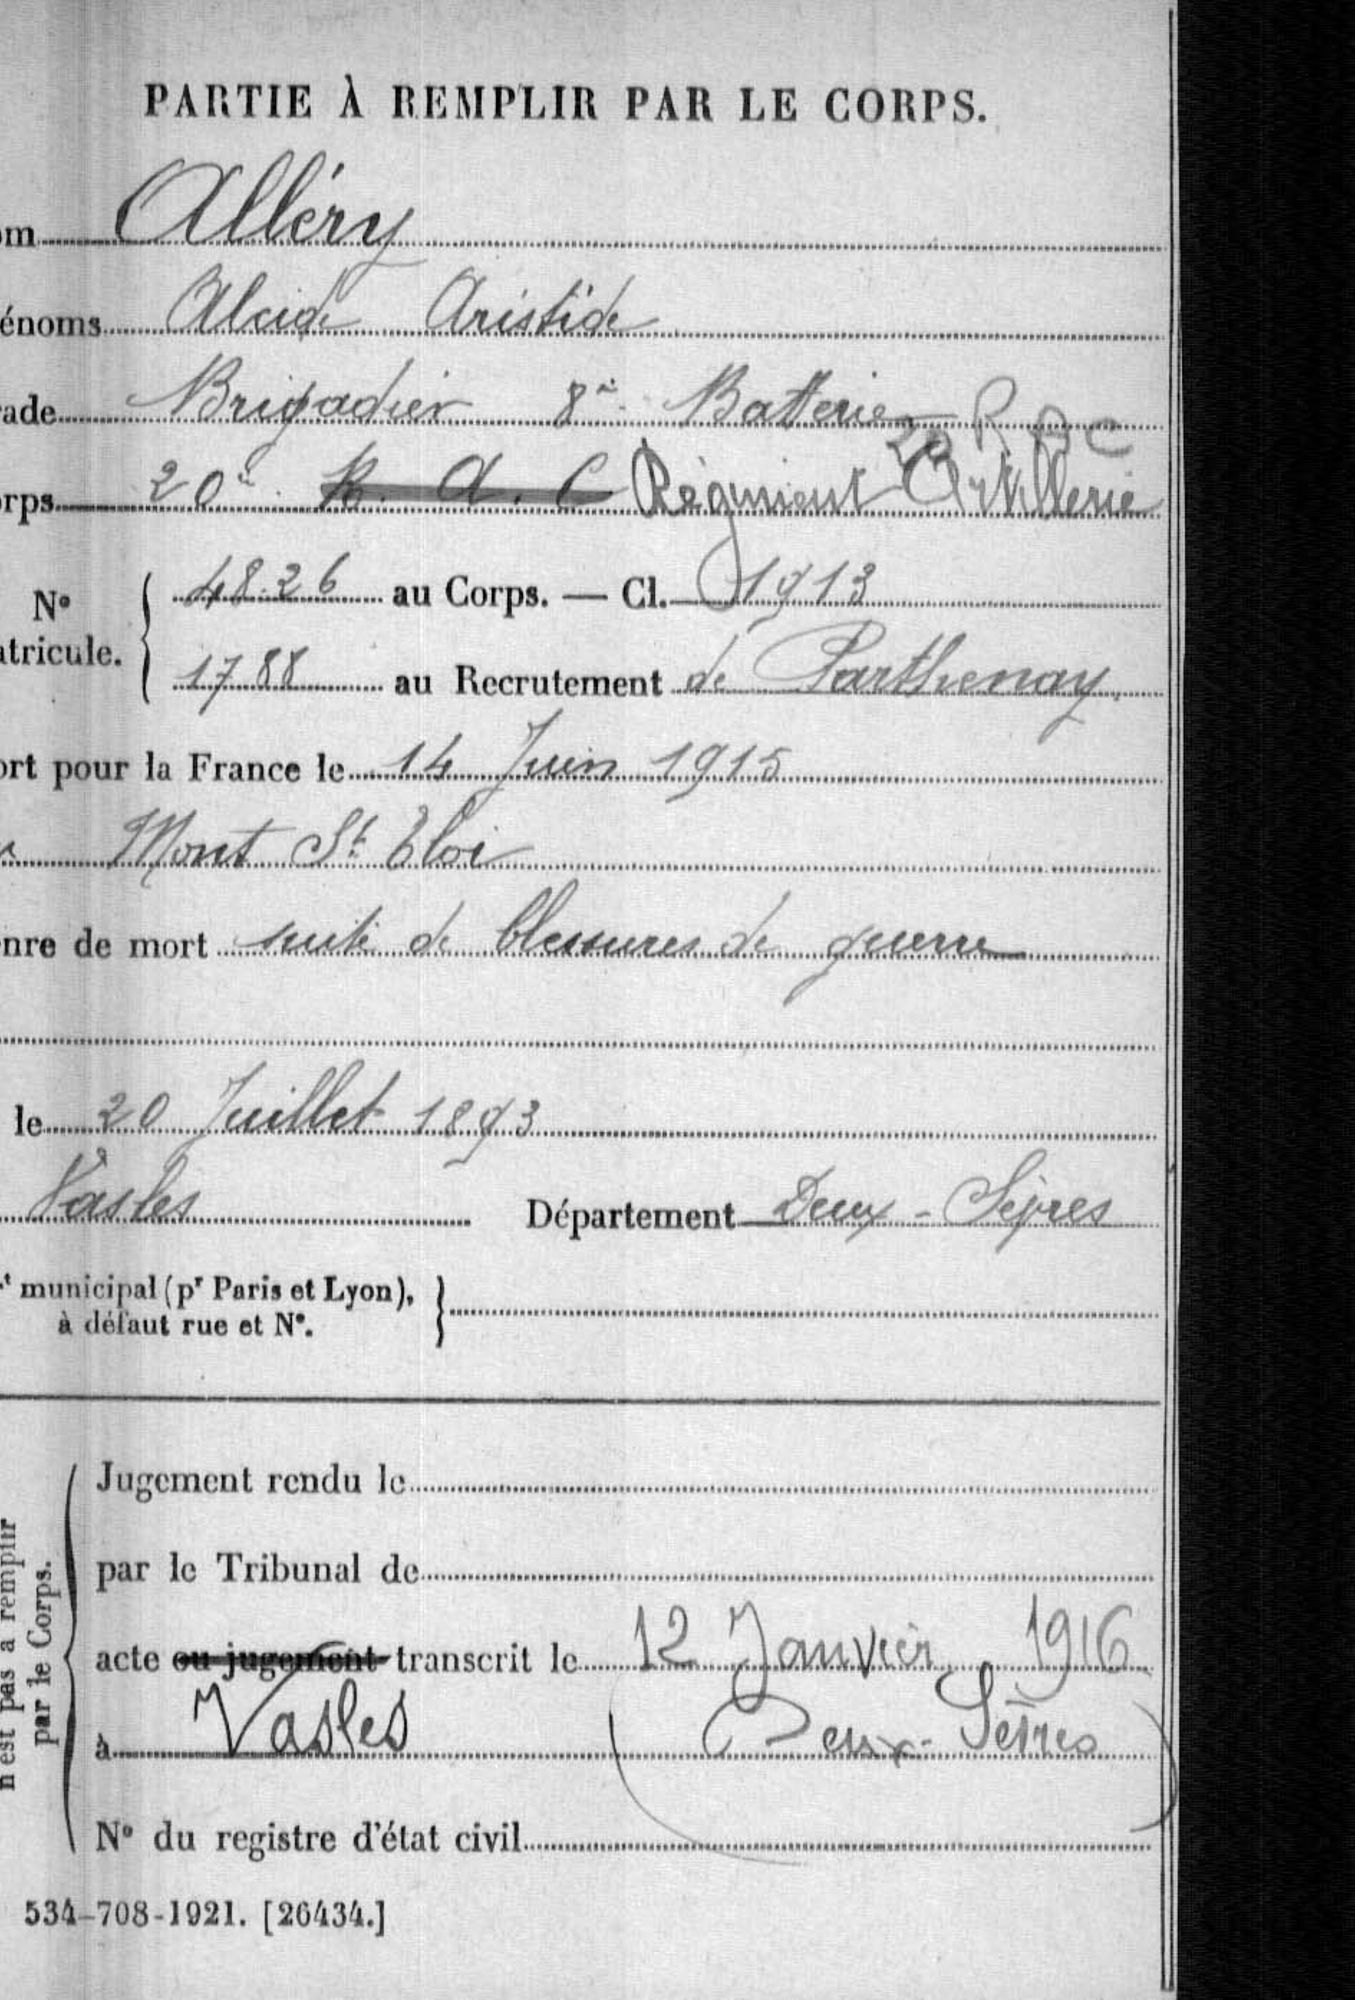 PARTIE À REMPLIR PAR LE CORPS.
om Alléry
énoms Alcide Aristide
rade Brigadier 8e Batterie
20 R A C
orps 20e R. A. C Régiment Artillerie
No 4826 au Corps. — Cl. 1913
atricule. 1788 au Recrutement de Parthenay
ort pour la France le 14 Juin 1915
Mont St Eloi
nre de mort suite de blessures de guerre
le 20 Juillet 1893
Vasles Département Deux-Sèvres
t municipal (pr Paris et Lyon),
à défaut rue et No.
Jugement rendu le
par le Tribunal de
acte ou jugement transcrit le 12 Janvier 1916
à Vasles (Deux-Sèvres)
No du registre d'état civil
n'est pas à remplir
par le Corps.
534-708-1921. [26434.]